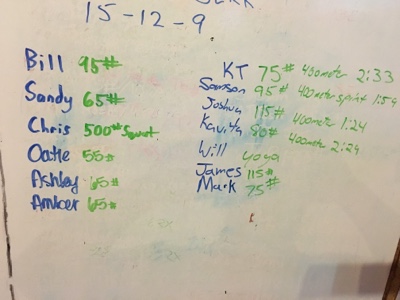 15-12-9
Bill 95#
Sandy 65#
Chris 500# Squat
Oatie 55#
Ashley 65#
Amber 65#
KT 75# 400meter 2:33
Samson 95# 400meter sprint 1:59
Joshua 115# 400meter 1:24
Kavita 80# 400meter 2:29
Will yoga
James 115#
Mark 75#